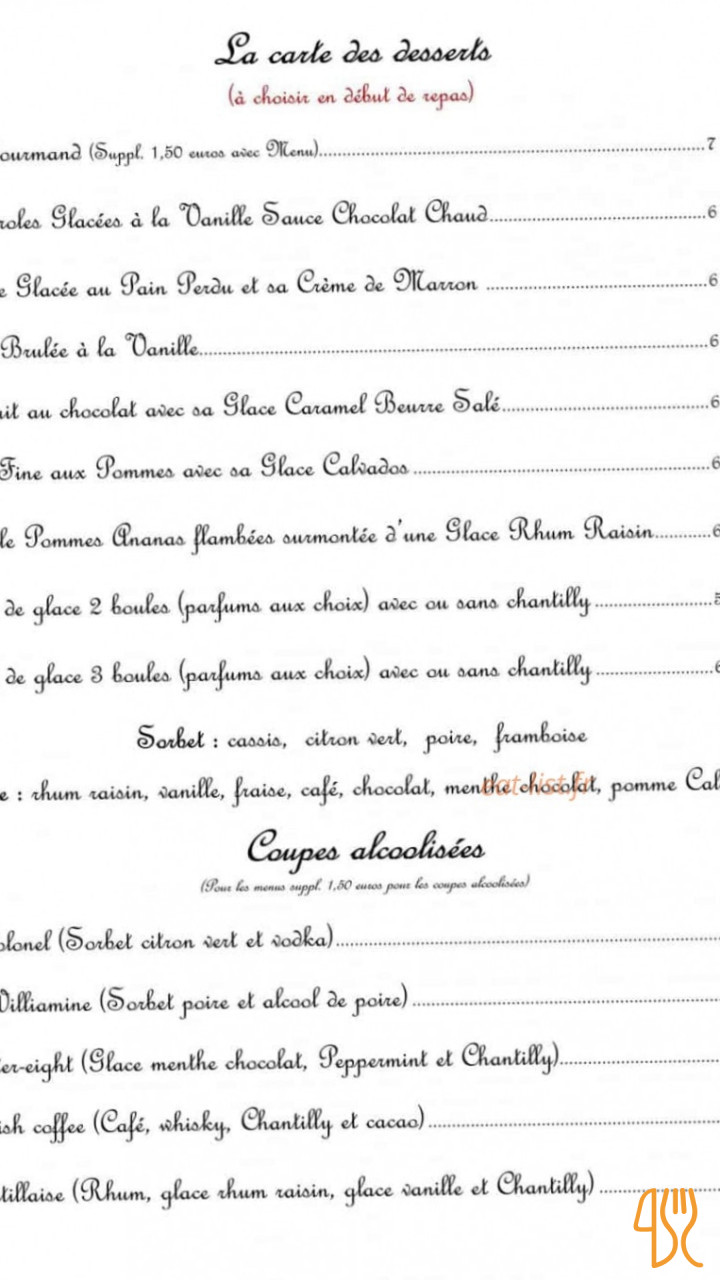 La carte des desserts
(à choisir en début de repas)
ourmand (Suppl. 1,50 euros avec Menu)....................7
roles Glacées à la Vanille Sauce Chocolat Chaud....................6
e Glacée au Pain Perdu et sa Crème de Marron ....................6
Brulée à la Vanille....................6
it au chocolat avec sa Glace Caramel Beurre Salé....................6
Fine aux Pommes avec sa Glace Calvados ....................6
le Pommes Ananas flambées surmontée d'une Glace Rhum Raisin....................6
de glace 2 boules (parfums aux choix) avec ou sans chantilly ....................5
de glace 3 boules (parfums aux choix) avec ou sans chantilly ....................6
Sorbet : cassis, citron vert, poire, framboise
e : rhum raisin, vanille, fraise, café, chocolat, menthe chocolat, pomme Cal
Coupes alcoolisées
(Pour les menus suppl. 1,50 euros pour les coupes alcoolisées)
olonel (Sorbet citron vert et vodka)....................
Williamine (Sorbet poire et alcool de poire) ....................
er-eight (Glace menthe chocolat, Peppermint et Chantilly)....................
ish coffee (Café, whisky, Chantilly et cacao) ....................
tillaise (Rhum, glace rhum raisin, glace vanille et Chantilly) ....................